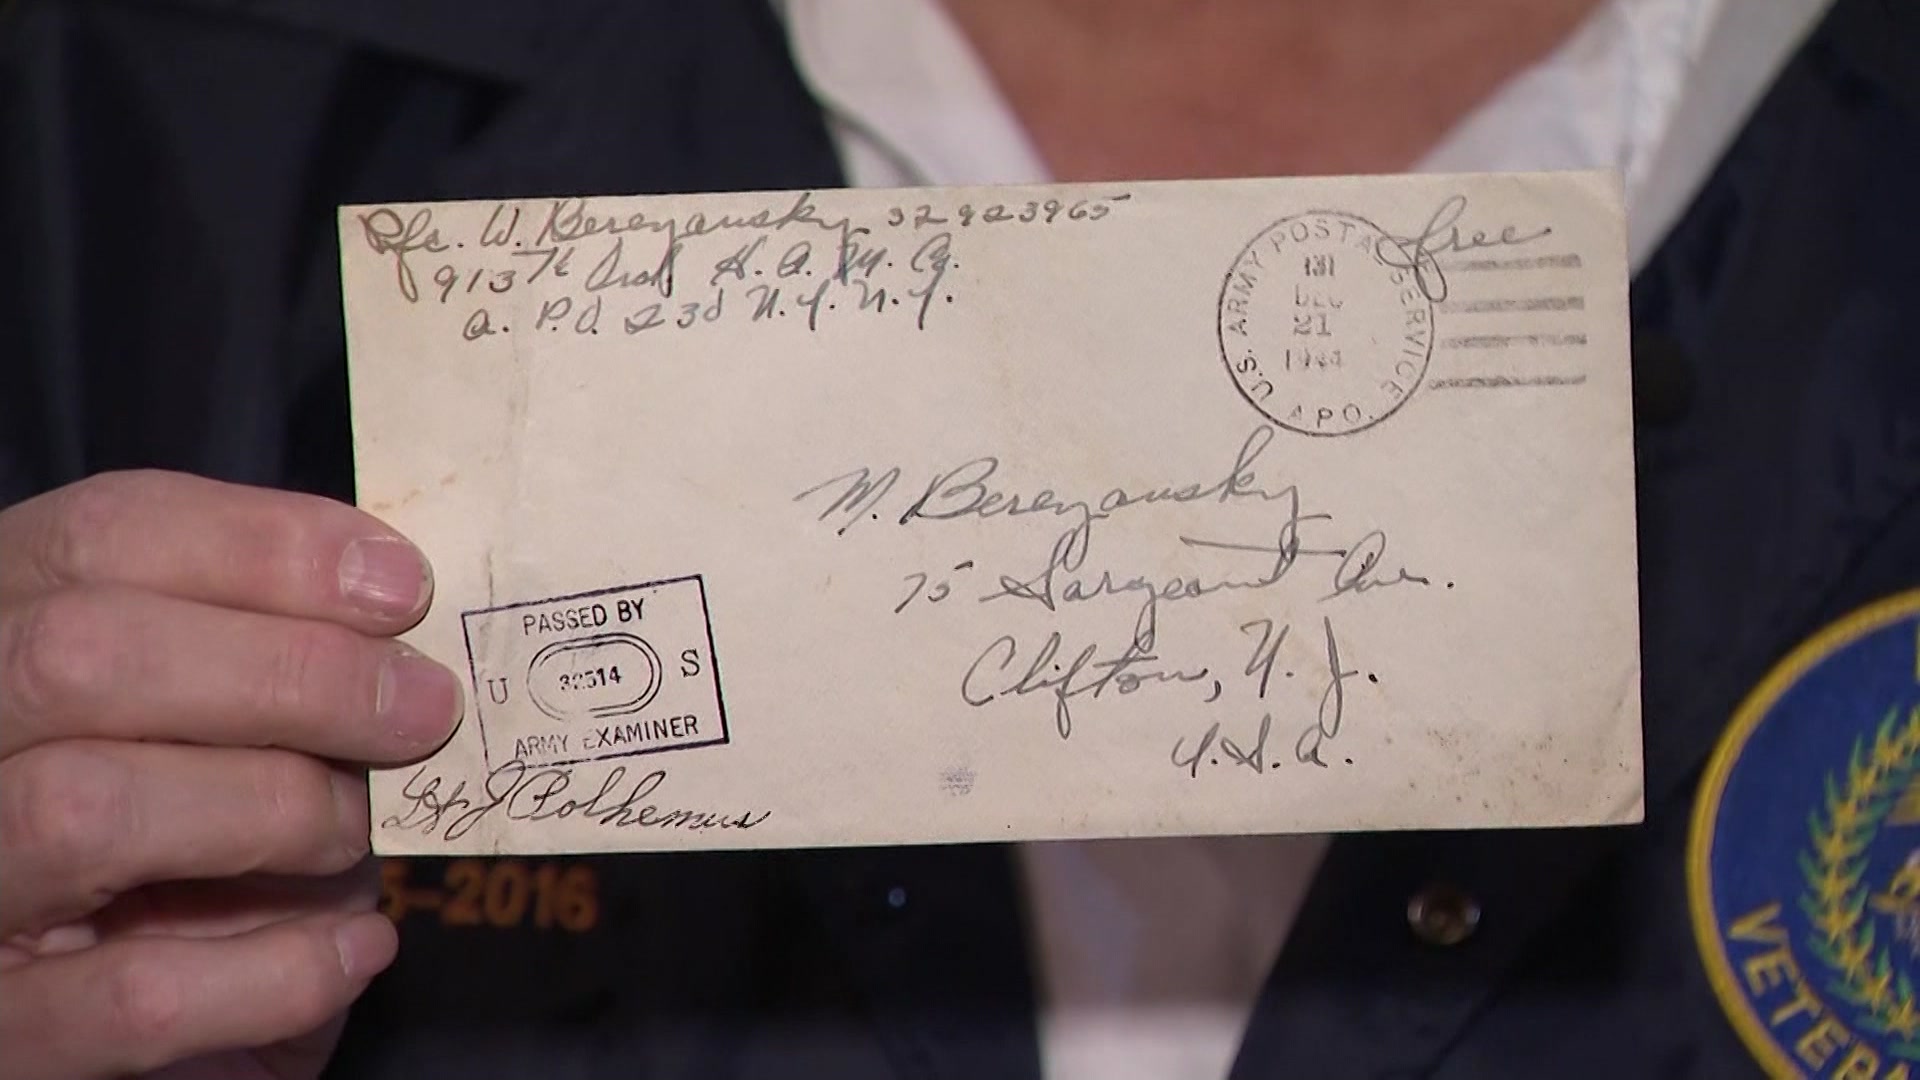 Pfc. W. Berezansky 32923965
913th Ord. H. A. M. Co.
A. P. O. 230 N. Y. N. Y.
free
U.S. ARMY POSTAL SERVICE
DEC
21
1944
A.P.O.
M. Berezansky
75 Sargeant Ave.
Clifton, N. J.
U. S. A.
PASSED BY
U 32514 S
ARMY EXAMINER
Lt J Polhemus
5-2016